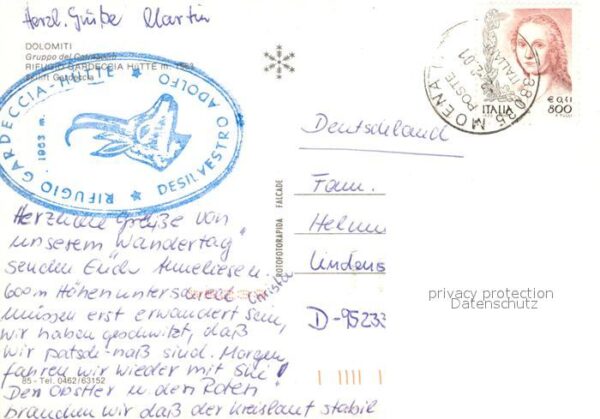 Herzl. Grüße Martin
DOLOMITI
Gruppo del Catinaccio
RIFUGIO GARDECCIA HÜTTE m. 1963
Gardeccia
RIFUGIO GARDECCIA-HÜTTE ★ DESILVESTRO ADOLFO ★
1963 m.
38035 MOENA
POSTE ITALIANE
01
ITALIA
€ 0,41
800
Deutschland
Fam.
Helmu
Lindens
D-95233
FOTORAPIDA FALCADE
Herzliche Grüße von
unserem "Wandertag"
senden Euch Anneliese u. Christa
600m Höhenunterschied
müssen erst erwandert sein,
wir haben geschwitzt, daß
wir patsch-naß sind. Morgen
fahren wir wieder mit Ski!
Den Obstler u. den Roten
brauchen wir daß der Kreislauf stabil
85 - Tel. 0462/63152
privacy protection
Datenschutz